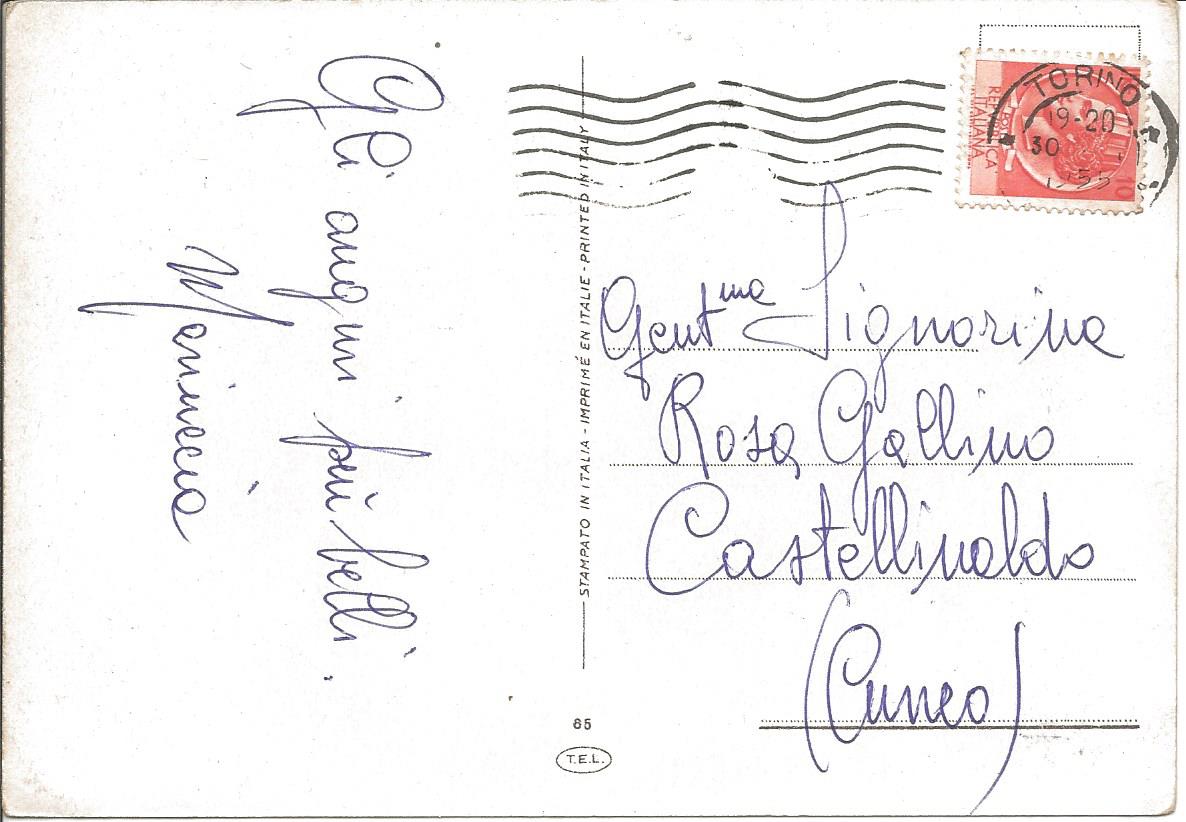 Gli auguri più belli.
Mariuccia
STAMPATO IN ITALIA - IMPRIMÉ EN ITALIE - PRINTED IN ITALY
65
T.E.L.
TORINO
19-20
30
1955
REPUBBLICA
ITALIANA
10
Gent.ma Signorina
Rosa Gallino
Castellinaldo
(Cuneo)